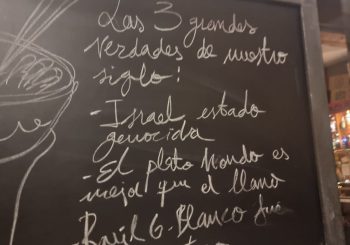 Las 3 grandes
verdades de nuestro
siglo:
- Israel, estado
genocida
- El plato hondo es
mejor que el llano
Raúl G. Blanco fué